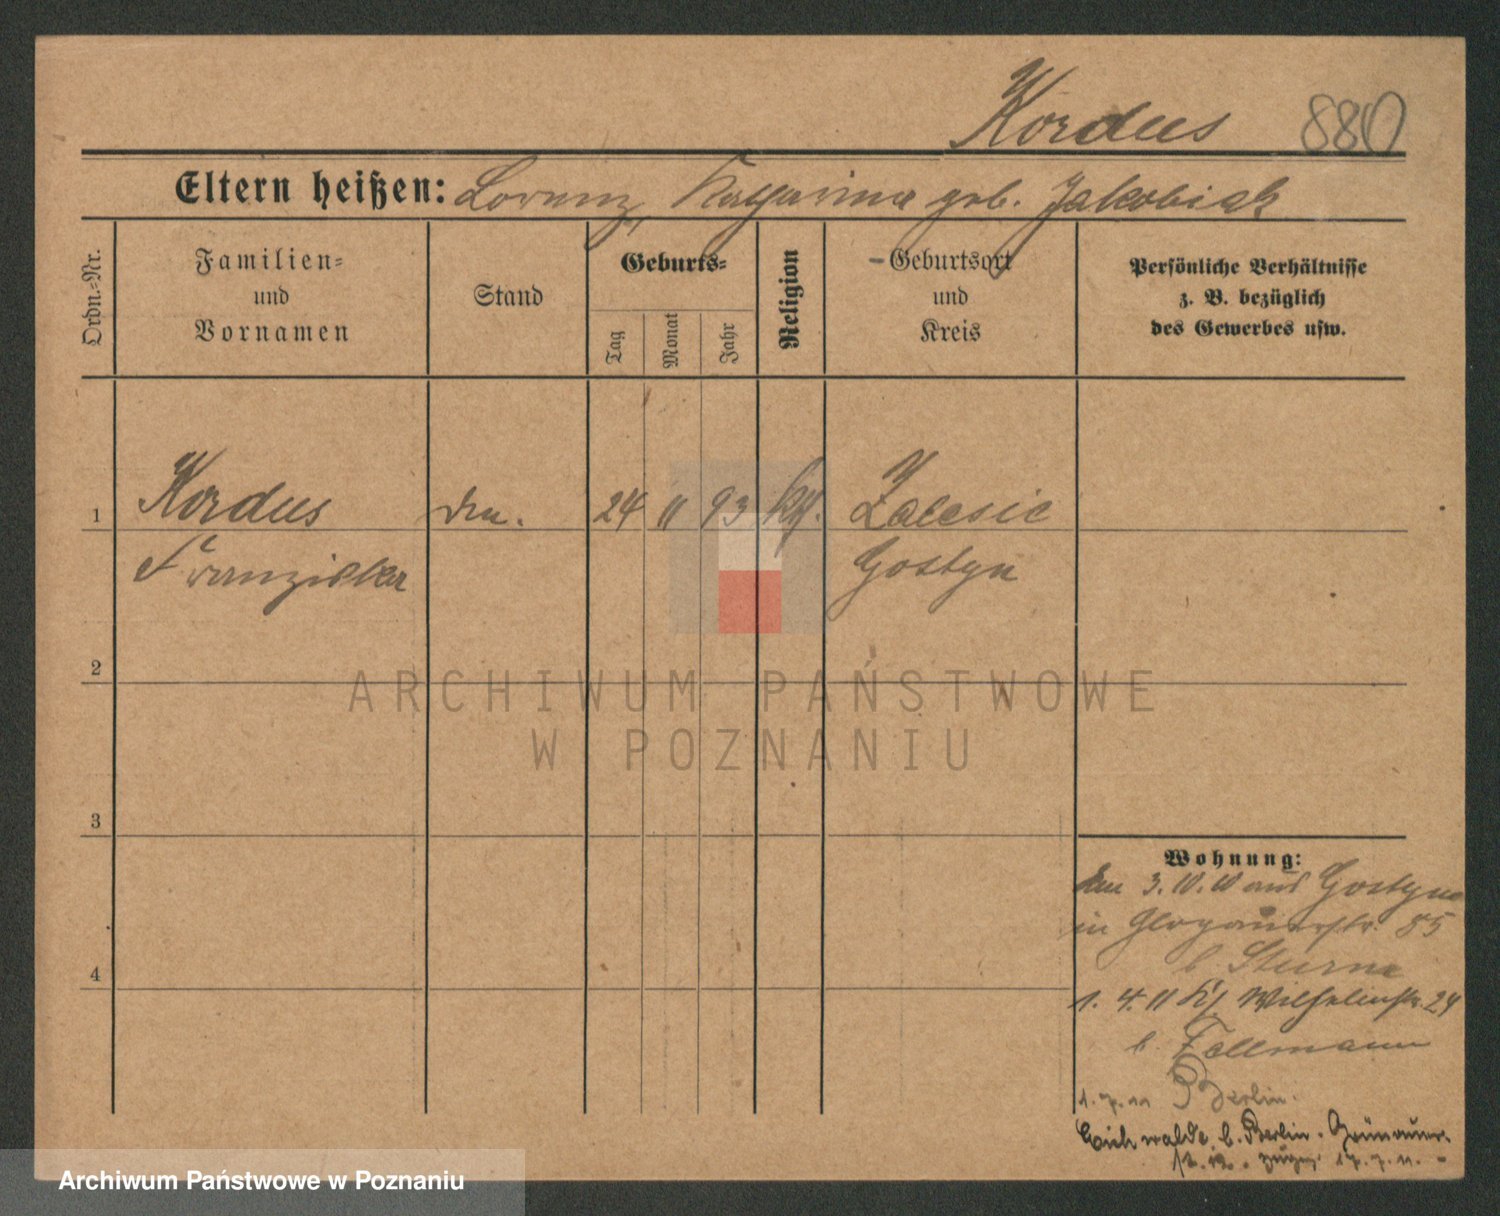 Kordus 880
Eltern heißen: Lorenz, Katharina geb. Jakobiak
Ordn.-Nr.
Familien-
und
Vornamen
Stand
Geburts-
Tag
Monat
Jahr
Religion
Geburtsort
und
Kreis
Persönliche Verhältnisse
z. B. bezüglich
des Gewerbes usw.
1
Kordus 24 11 93 kth. Zalesie
Franziska Gostyn
2
ARCHIWUM PAŃSTWOWE
W POZNANIU
3
4
Wohnung:
3. 10. 10 aus Gostyn
in Glogauerstr. 85
b. Sturm
1. 4. 11 Wilhelmstr. 24
b.
1. 7. 11 Berlin.
Eichwalde b. Berlin. Grünauer-
17. 7. 11. -
Archiwum Państwowe w Poznaniu